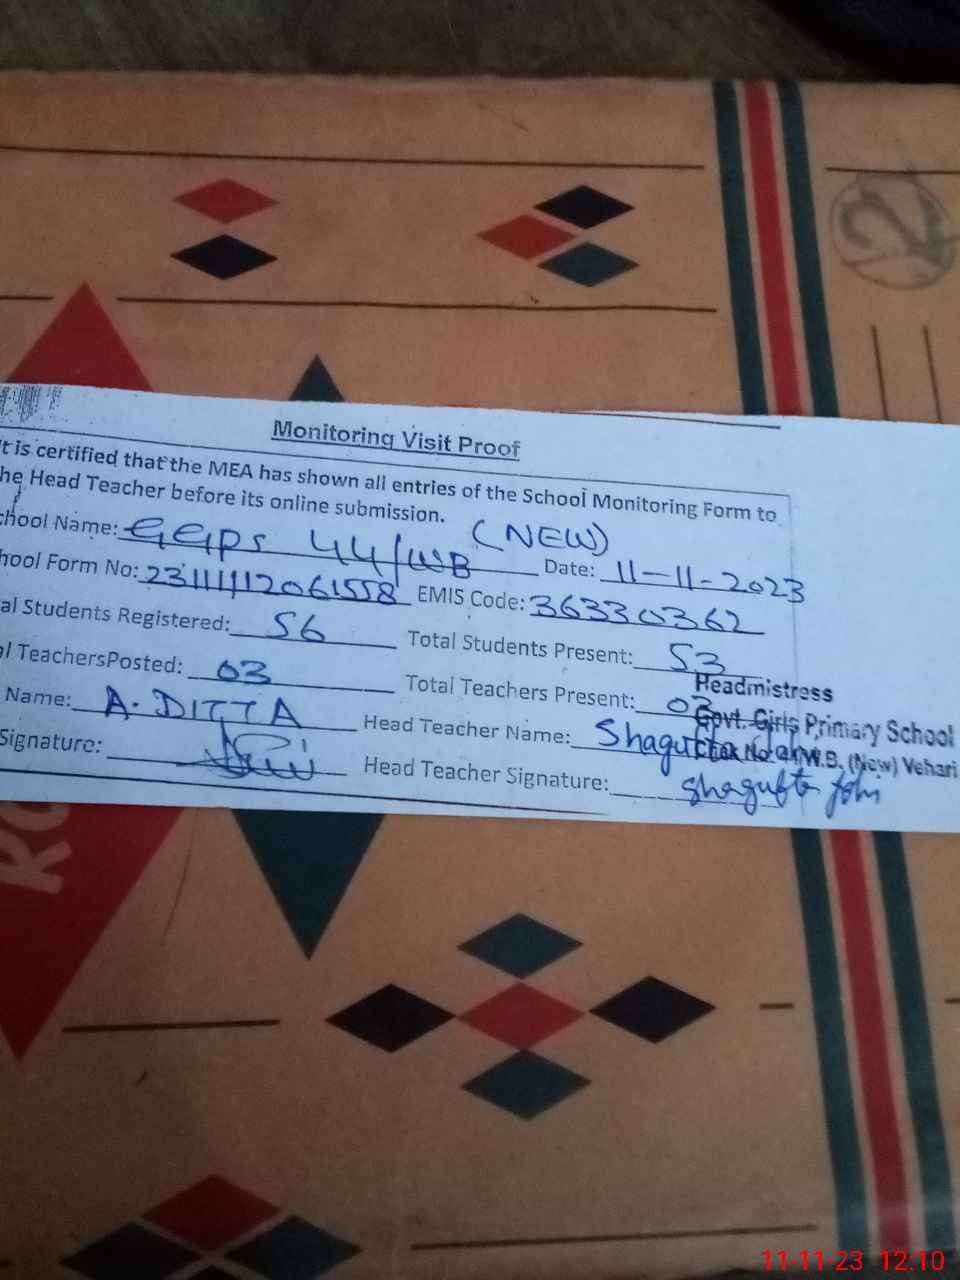 2
Monitoring Visit Proof
t is certified that the MEA has shown all entries of the School Monitoring Form to
he Head Teacher before its online submission.
chool Name: GGPS 44/WB (NEW) Date: 11-11-2023
hool Form No: EMIS Code: 36330362
al Students Registered: 56 Total Students Present: 53
al TeachersPosted: 03 Total Teachers Present: 03
Name: A. DITTA Head Teacher Name: Shagufta
Headmistress
Govt. Girls Primary School
Chak No. 44/W.B. (New) Vehari
Signature: Head Teacher Signature: Shagufta John
RO
11-11-23 12:10